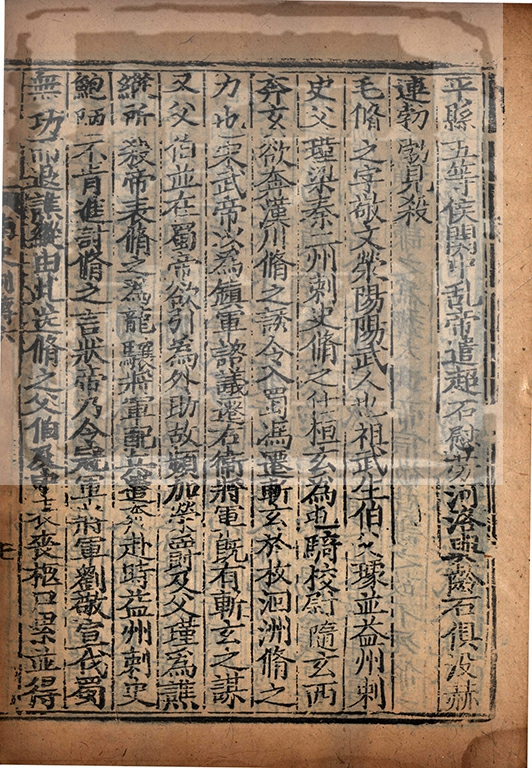 平縣五等侯関中乱帝遣超石慰劳河洛與齡石俱没赫
連勃勃見殺
毛脩之字敬文滎陽陽武人也祖武生伯父璩並益州刺
史父瑾梁秦二州刺史脩之仕桓玄為屯騎校尉隨玄西
奔玄欲奔漢川脩之誘令入蜀馮遷斬玄於枚洄洲脩之
力也宋武帝以為鎮軍諮議遷右衞將軍既有斬玄之謀
又父伯並在蜀帝欲引為外助故頻加榮爵及父瑾為譙
縱所殺帝表脩之為龍驤將軍配兵遣奔赴時益州刺史
鮑陋不肯進討脩之言狀帝乃令冠軍將軍劉敬宣伐蜀
無功而退譙縱由此送脩之父伯及中表喪柩口累並得